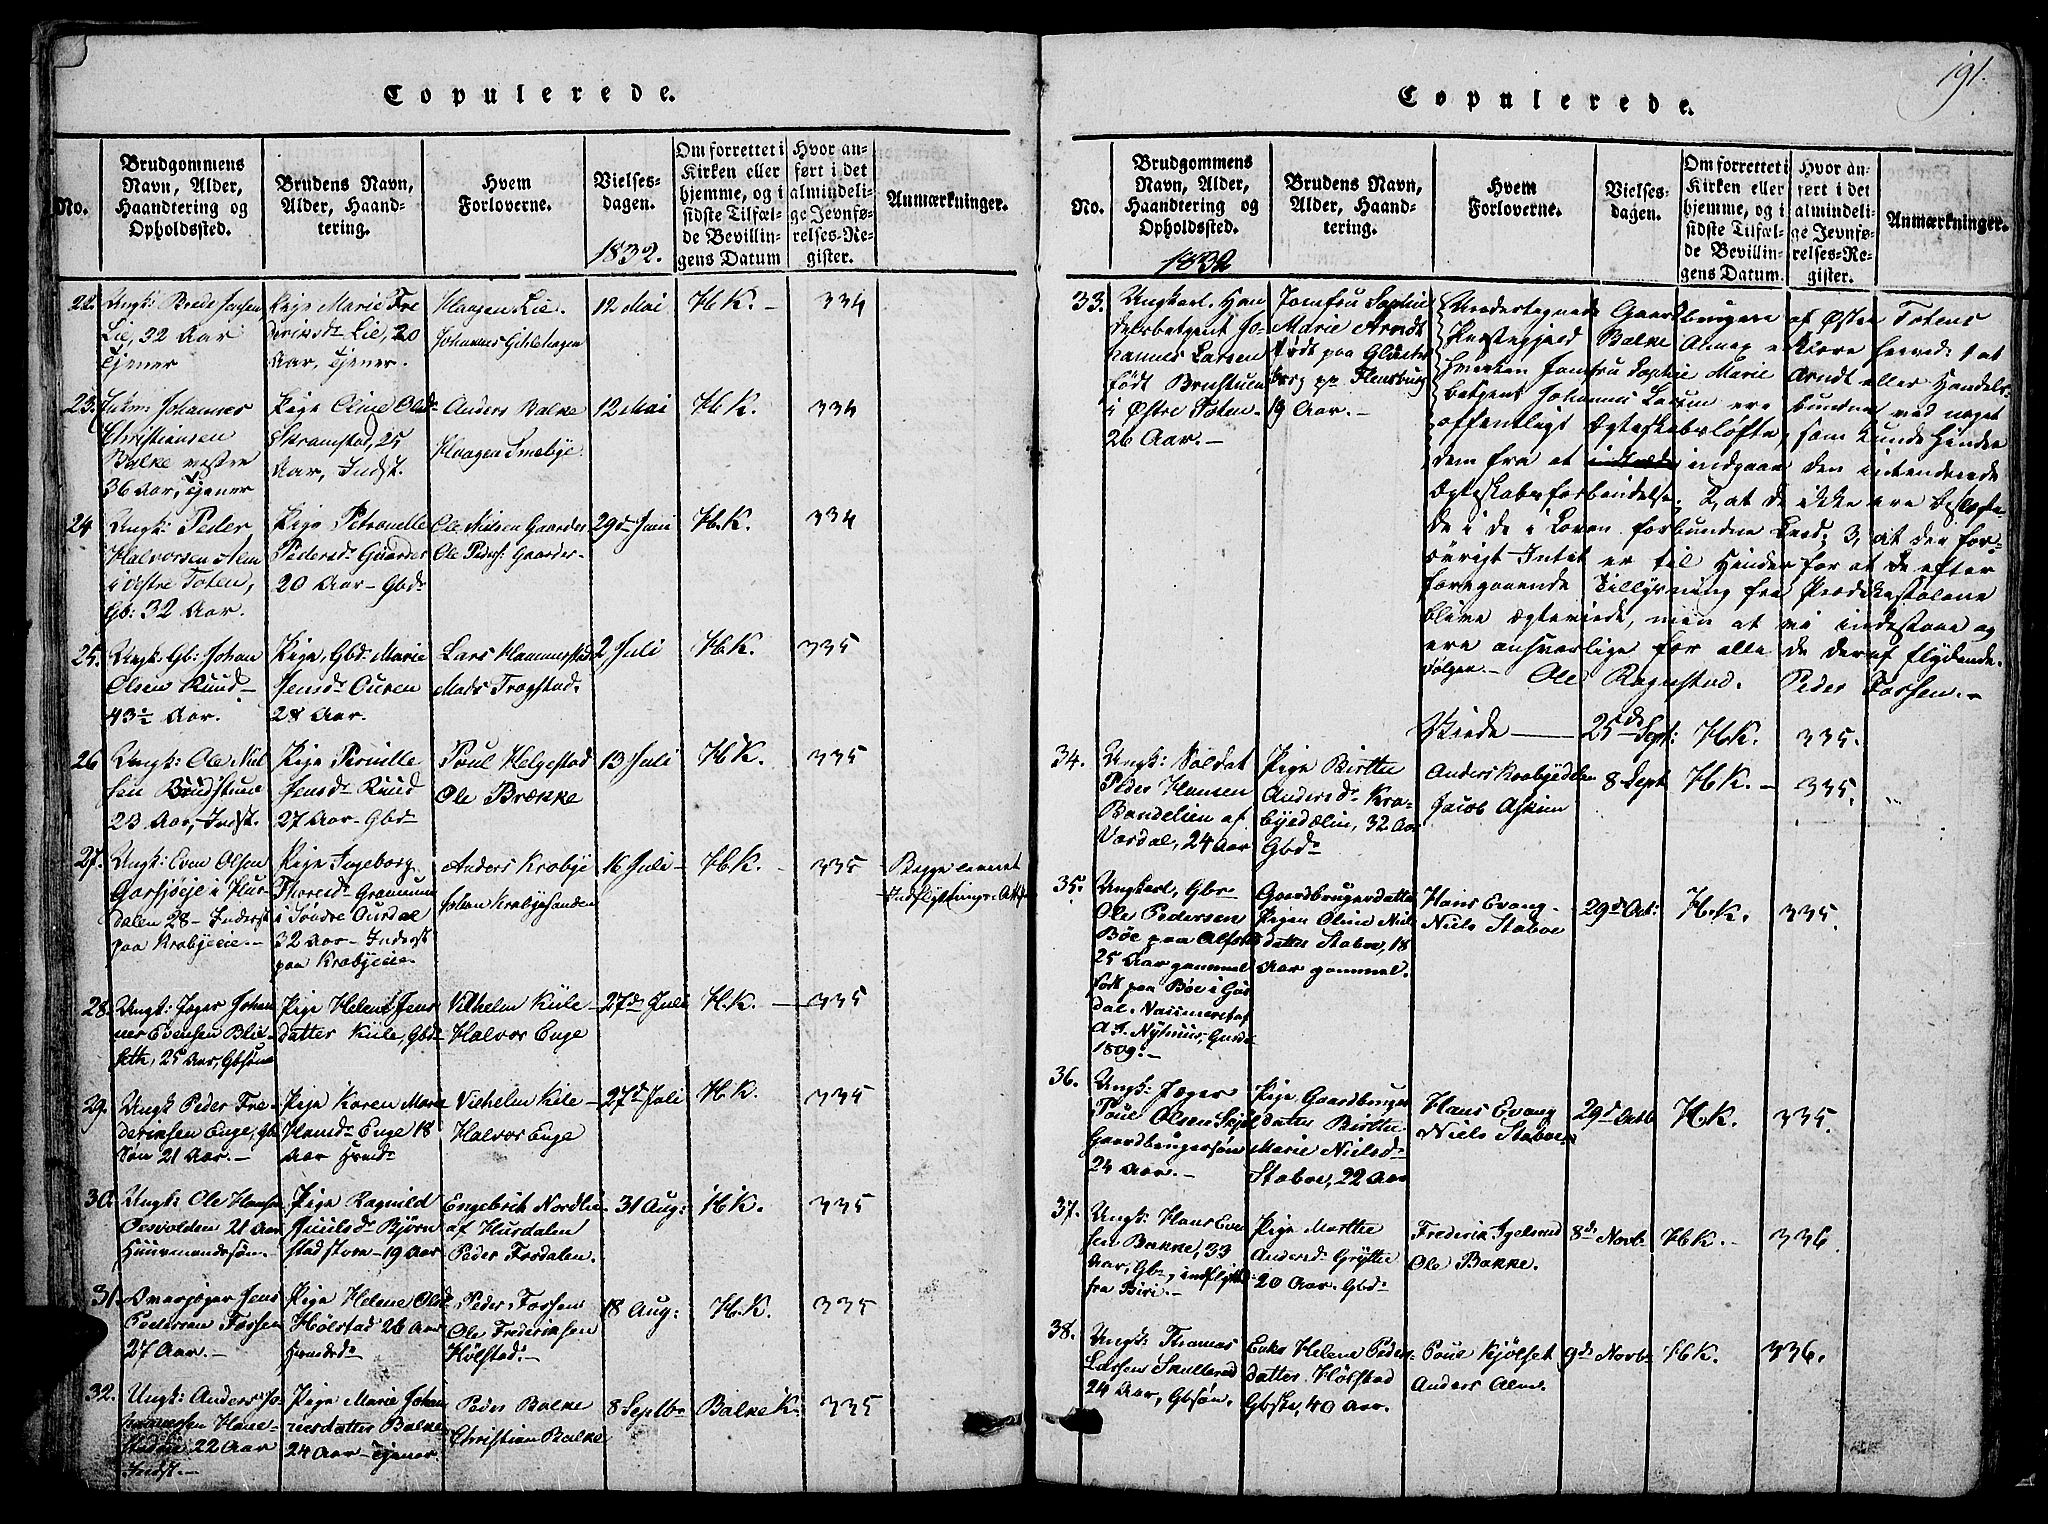 Copulerede.
No.
Brudgommens Navn, Alder, Haandtering og Opholdssted.
Brudens Navn, Alder, Haandtering.
Hvem Forloverne.
Vielsesdagen.
1832.
Om forrettet i Kirken eller hjemme, og i sidste Tilfælde Bevillingens Datum
Hvor anført i det almindelige Jevnførelses-Register.
Anmærkninger.
22.
Ungk: Brede Jensen
Lie, 32 Aar
Tjener
Pige Marie Fre
deriksdr Lie, 20
Aar, Tjener.
Haagen Lie.
Johannes Gihlehagen
12 Mai
H K. -
334
23.
Johannes
Christiansen
Balke vestre
36 Aar, Tjener
Pige Eline Olsdr
Skramstad, 25
Aar, Indst.
Anders Balke
Haagen Smebye
12 Mai
H K.
334
24
Ungk: Peder
Halvorsen Alm
i vestre Toten,
Gb: 32 Aar.
Pige Petronelle
Pedersdr Gaarder
20 Aar - Gbdr
Ole Nilsen Gaarder
Ole Peders: Gaarder-
29d Juni
H. K.
334
25.
Ungk. Gb: Johan
Olsen Ruud -
43½ Aar.
Pige, Gbdr Marie
Jensdr Ouren
28 Aar.
Lars Hammerstad
Mads Trogstad.
2 Juli
H K.
335
26
Ungk: Ole Niel
sen Bundstuen
23 Aar, Indst.
Pige Pernille
Jensdr Ruud
27 Aar - Gbdr
Poul Helgestad
Ole Brække
13 Juli
H K.
335
27.
Ungk: Even Olsen
Garsjøeje i Hur-
dalen 28 - Inderst
paa Krabyeie. -
Pige Ingeborg
Thoresdr
i Søndre Ourdal
32 Aar - Inderst
paa Krabyeie.
Anders Krabye
Johan Krabyesanden
16 Juli -
H K.
335
Begge leveret
Indflytnings-Att.
28.
Ungk: Jæger Johan
nes Evensen Blil-
seth, 25 Aar, Gbsøn
Pige Helene Jens
datter Kiile, Gbdr
Vilhelm Kiile -
Halvor Enge
27d Juli
H. K.
335
29.
Ungk Peder Fre-
deriksen Enge, Gb
Søn 21 Aar. -
Pige Karen Marie
Hansdr Enge 18
Aar Hmdr
Vilhelm Kile -
Halvor Enge
27d Juli
H. K.
335
30.
Ungk: Ole Hansen
Oosvolden 21 Aar
Huusmandssøn.
Pige Ragnild
Juulsdr Bjørn
stadstom - 19 Aar
Engebrit Nordlie
af Hurdalen
Peder Fosdalen.
31 Aug:
H K.
335
31.
Overjæger Jens
Pedersen Fossen
27 Aar. -
Pige Helene Olsdr
Hølstad 26 Aar
Hmdsdr
Peder Fossen
Ole Frederiksen
Hølstad. -
18 Aug:
H. K.
335
32.
Ungk: Anders Jo
hannesen Hane-
staden 22 Aar
Indst. -
Pige Marie Johan
nesdatter Balke
24 Aar - Tjener
Peder Balke
Christian Balke
8 Septbr
Balke K.
335
191.
Copulerede.
No.
Brudgommens Navn, Alder, Haandtering og Opholdssted.
1832
Brudens Navn, Alder, Haandtering.
Hvem Forloverne.
Vielsesdagen.
Om forrettet i Kirken eller hjemme, og i sidste Tilfælde Bevillingens Datum.
Hvor anført i det almindelige Jevnførelses-Register.
Anmærkninger.
33.
Ungkarl. Han
delsbetjent Jo-
hannes Larsen
født Brustuen
i Østre Toten.
26 Aar. -
Jomfru Sophie
Marie Arndt
født paa Glücks
borg pr Flensburg
19 Aar. -
Undertegnede Gaardbrugere af Østre Totens
Præstegjeld Balke Almeg erklære herved: 1, at
hverken Jomfru Sophie Marie Arndt eller Handels-
betjent Johannes Larsen ere bundne ved noget
offentligt Ægteskabsløfte, som kunde hindre
dem fra at indgaae den intenderede
Ægteskabsforbindelse, 2, at de ikke ere beslægte-
de i de i Loven forbudne Leed; 3, at der for-
øvrigt Intet er til Hinder for at de efter
foregaaende Tillysning fra Prædikestolene
blive ægteviede, men at vi indestaae og
ere ansvarlige for alle de deraf flydende
Følger. - Ole Rognstad. Peder Fossen. -
Viede - 25de Sept: H K. 335.
34.
Ungk: Soldat
Peder Hansen
Bandelien af
Vardal, 24 Aar
Pige Birthe
Andersdr Kra-
byedælin, 32 Aar
Gbdr
Anders Krabyedelen
Jacob Askim
8 Sept
H K. -
335.
35.
Ungkarl, Gbr
Ole Pedersen
Bøe paa Alfstad
25 Aar gammel
født paa Bøe i Gus
dal.
A T. Nysnius, Gusdal
1809. -
Gaardbrugerdatter
Pigen Oline Niels
datter Staboe, 18
Aar gammel.
Hans Evang -
Niels Staboe
29d Oct:
H. K.
335.
36.
Ungk: Jæger
Poul Olsen Skjel
Gaardbrugersøn
24 Aar. -
Pige, Gaardbruger
datter Birthe
Marie Nielsdr
Staboe, 22 Aar
Hans Evang
Niels Staboe
29d Octb
H K.
335.
37.
Ungk: Hans Even
sen Bakke, 33
Aar, Gbr, indflyttet
fra Biri. -
Pige Marthe
Andersdr Grytte
20 Aar. Gbdr
Frederik Igelsrud
Ole Bakke.
8d Novbr
H K. -
336
38.
Ungk: Thomas
Larsen Skullerud
24 Aar, Gbsøn.
Enke Helene Peders-
datter Hølstad
Gbske, 40 Aar.
Poul Kjølset
Anders Alm.
9d Novbr
H K.
336.